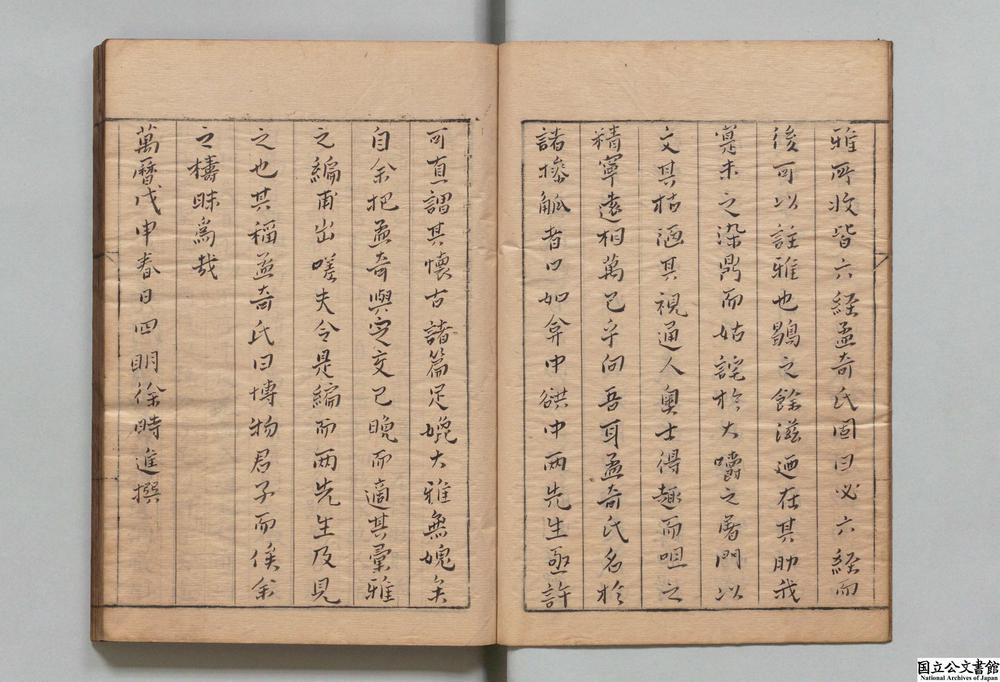 雅所收皆六經孟奇氏固曰必六經而
後可以註雅也鷃之餘滋迺在其肋哉
寔未之染鼎而姑詫於大嚼之屠門以
文其枯洒其視通人奧士得趣而咀之
精寧遠相萬已乎向吾耳孟奇氏名於
諸操觚者口如弇中谼中兩先生亟許
可直謂其懷古諸篇足媲大雅無媿矣
自余把孟奇與定交已晚而適其彙雅
之編甫出嗟夫令是編而兩先生及見
之也其稱孟奇氏曰博物君子而俟余
之檮昧爲哉
萬曆戊申春日四明徐時進撰
国立公文書館
National Archives of Japan